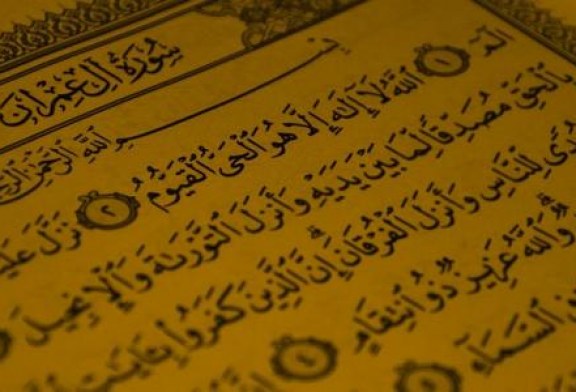 سُورَةُ آلِ عِمْرَانَ
بِسْمِ ٱللَّهِ ٱلرَّحْمَٰنِ
الٓمٓ ١ ٱللَّهُ لَآ إِلَٰهَ إِلَّا هُوَ ٱلْحَىُّ ٱلْقَيُّومُ ٢ نَزَّلَ
بِٱلْحَقِّ مُصَدِّقًا لِّمَا بَيْنَ يَدَيْهِ وَأَنزَلَ ٱلتَّوْرَىٰةَ وَٱلْإِنجِيلَ
لِّلنَّاسِ وَأَنزَلَ ٱلْفُرْقَانَ ۗ إِنَّ ٱلَّذِينَ كَفَرُوا۟ بِـَٔايَٰتِ
وَٱللَّهُ عَزِيزٌ ذُو ٱنتِقَامٍ ٤
ٱلسَّمَآءِ